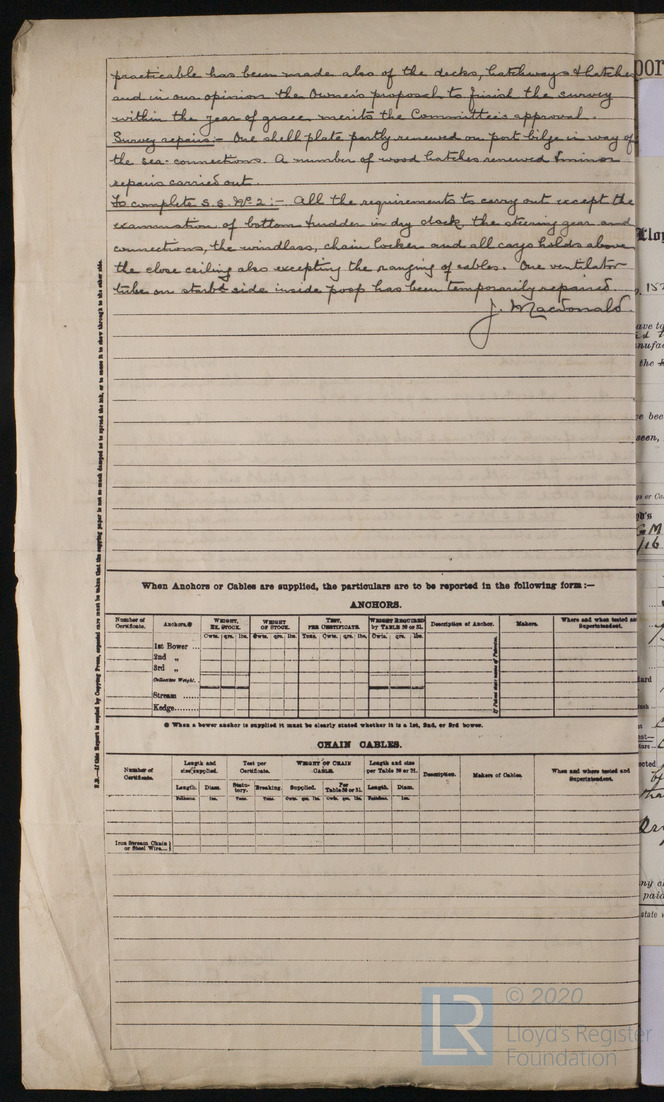 practicable has been made also of the decks, hatchways & hatches
and in our opinion the Owner's proposal to finish the survey
within the year of grace merits the Committee's approval.
Survey repairs:- One shell plate partly renewed on port bilge in way of
the sea-connections. A number of wood hatches renewed & minor
repairs carried out.
To complete S.S. No 2:- All the requirements to carry out except the
examination of bottom & rudder in dry dock, the steering gear and
connections, the windlass, chain locker and all cargo holds above
the close ceiling also excepting the ranging of cables. One ventilator
tube on starbd side inside poop has been temporarily repaired.
J. Macdonald.
N.B.—If this Report is copied by Copying Press, especial care must be taken that the copying paper is not so much damped as to spread the ink, or to cause it to show through to the other side.
When Anchors or Cables are supplied, the particulars are to be reported in the following form:—
ANCHORS.
Number of Certificate. Anchors.@ WEIGHT, EX. STOCK. WEIGHT OF STOCK. TEST, PER CERTIFICATE. WEIGHT REQUIRED by TABLE 30 or 31. Description of Anchor. Makers. Where and when tested and Superintendent.
Cwts. qrs. lbs. Cwts. qrs. lbs. Tons. Cwts. qrs. lbs. Cwts. qrs. lbs.
1st Bower ...
2nd „
3rd „
Collective Weight.
Stream ......
Kedge........
If Patent state name of Patentee.
@ When a bower anchor is supplied it must be clearly stated whether it is a 1st, 2nd, or 3rd bower.
CHAIN CABLES.
Number of Certificate. Length and size supplied. Test per Certificate. WEIGHT OF CHAIN CABLE. Length and size per Table 30 or 31. Description. Makers of Cables. When and where tested and Superintendent.
Length. Diam. Statutory. Breaking. Supplied. Per Table 30 or 31. Length. Diam.
Fathoms. Ins. Tons. Tons. Cwts. qrs. lbs. Cwts. qrs. lbs. Fathoms. Ins.
Iron Stream Chain or Steel Wire...}
LR
© 2020
Lloyd's Register
Foundation